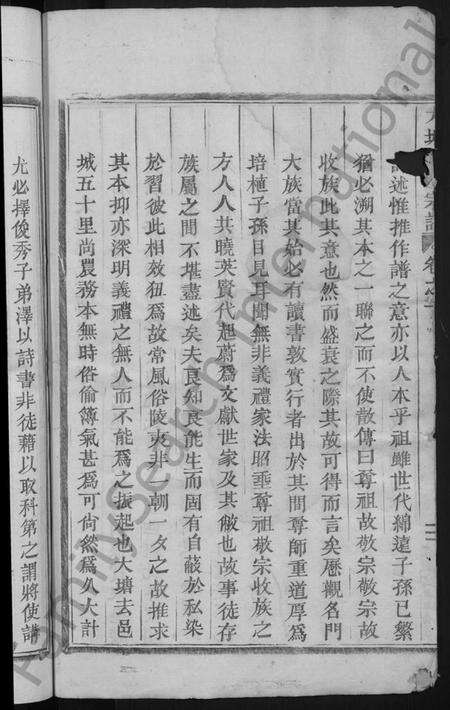 述惟推作譜之意亦以人本乎祖雖世代綿遠子孫已繁
猶必溯其本之一聯之而不使散傳曰尊祖故敬宗敬宗故
收族此其意也然而盛衰之際其故可得而言矣歷觀名門
大族當其始必有讀書敦實行者出於其間尊師重道厚爲
培植子孫目見耳聞無非義禮家法昭垂尊祖敬宗收族之
方人人共曉英賢代起蔚爲文獻世家及其敝也故事徒存
族屬之間不堪盡述矣夫良知良能生而固有自蔽於私染
於習彼此相效狃爲故常風俗陵夷非一朝一夕之故推求
其本抑亦深明義禮之無人而不能爲之振起也大塘去邑
城五十里尚農務本無時俗偷簿氣甚爲可尙然爲久大計
尤必擇俊秀子弟澤以詩書非徒藉以取科第之謂將使講
宗譜
卷之
FamilySearch International